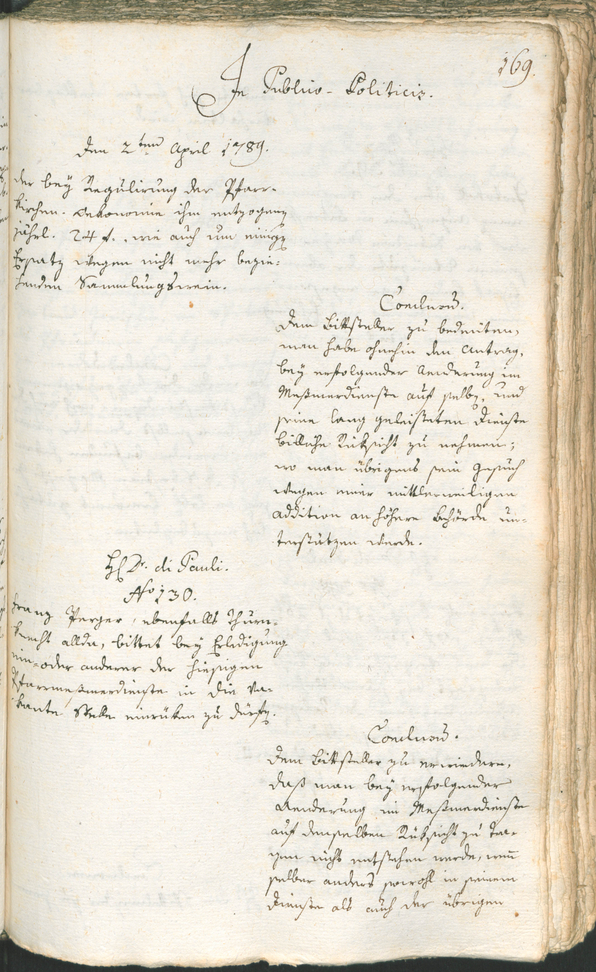 169.
In Publico-Politicis.
Den 2ten April 1789.
der bey Regulirung der Pfarr-
kirchen-Oekonomie ihm entzogenen
jährl. 24 f., wie auch um einigen
Ersatz wegen nicht mehr bezie-
henden Sammlungswein.
Conclusum.
Dem Bittsteller zu bedeuten,
man habe ohnehin den Antrag,
bey erfolgender Aenderung im
Meßmerdienste auf selben, und
seine lang geleisteten Dienste
billiche Rüksicht zu nehmen;
wo man übrigens sein Gesuch
wegen einer mittlerweiligen
addition an höhere Behörde un-
terstützen werde.
H. Dr. di Pauli.
No 130.
Franz Perger, ebenfalls Thurn-
knecht allda, bittet bey Erledigung
ein- oder anderer der hiesigen
Pfarrmeßmerdienste in die Va-
kante Stelle einrüken zu dürfen.
Conclusum.
Dem Bittsteller zu erwiedern,
daß man bey erfolgender
Aenderung im Meßmerdienste
auf denselben Rüksicht zu tra-
gen nicht entstehen werde, wenn
selber anders sowohl in seinem
Dienste als auch der übrigen